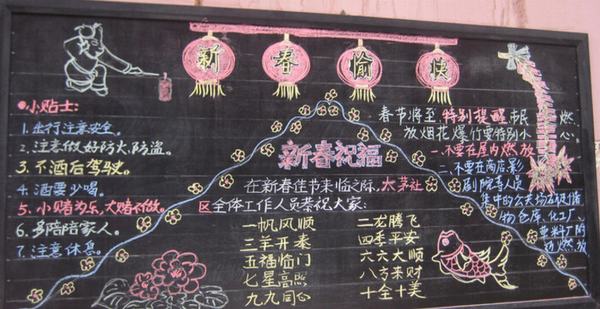 新春愉快
●小贴士:
1.出行注意安全。
2.注意做好防火、防盗。
3.不酒后驾驶。
4.酒要少喝。
5.小赌为乐,大赌不做。
6.多陪陪家人。
7.注意休息。
新春祝福
在新春佳节来临之际,太茅社
区全体工作人员恭祝大家:
一帆风顺 二龙腾飞
三羊开泰 四季平安
五福临门 六六大顺
七星高照 八方来财
九九同心 十全十美
春节将至 特别提醒市民 燃
放烟花爆竹要特别小心。
一.不要在屋内燃放
二.不要在商店、影
剧院等人员
集中的公共场合
物仓库、化工厂、
燃放